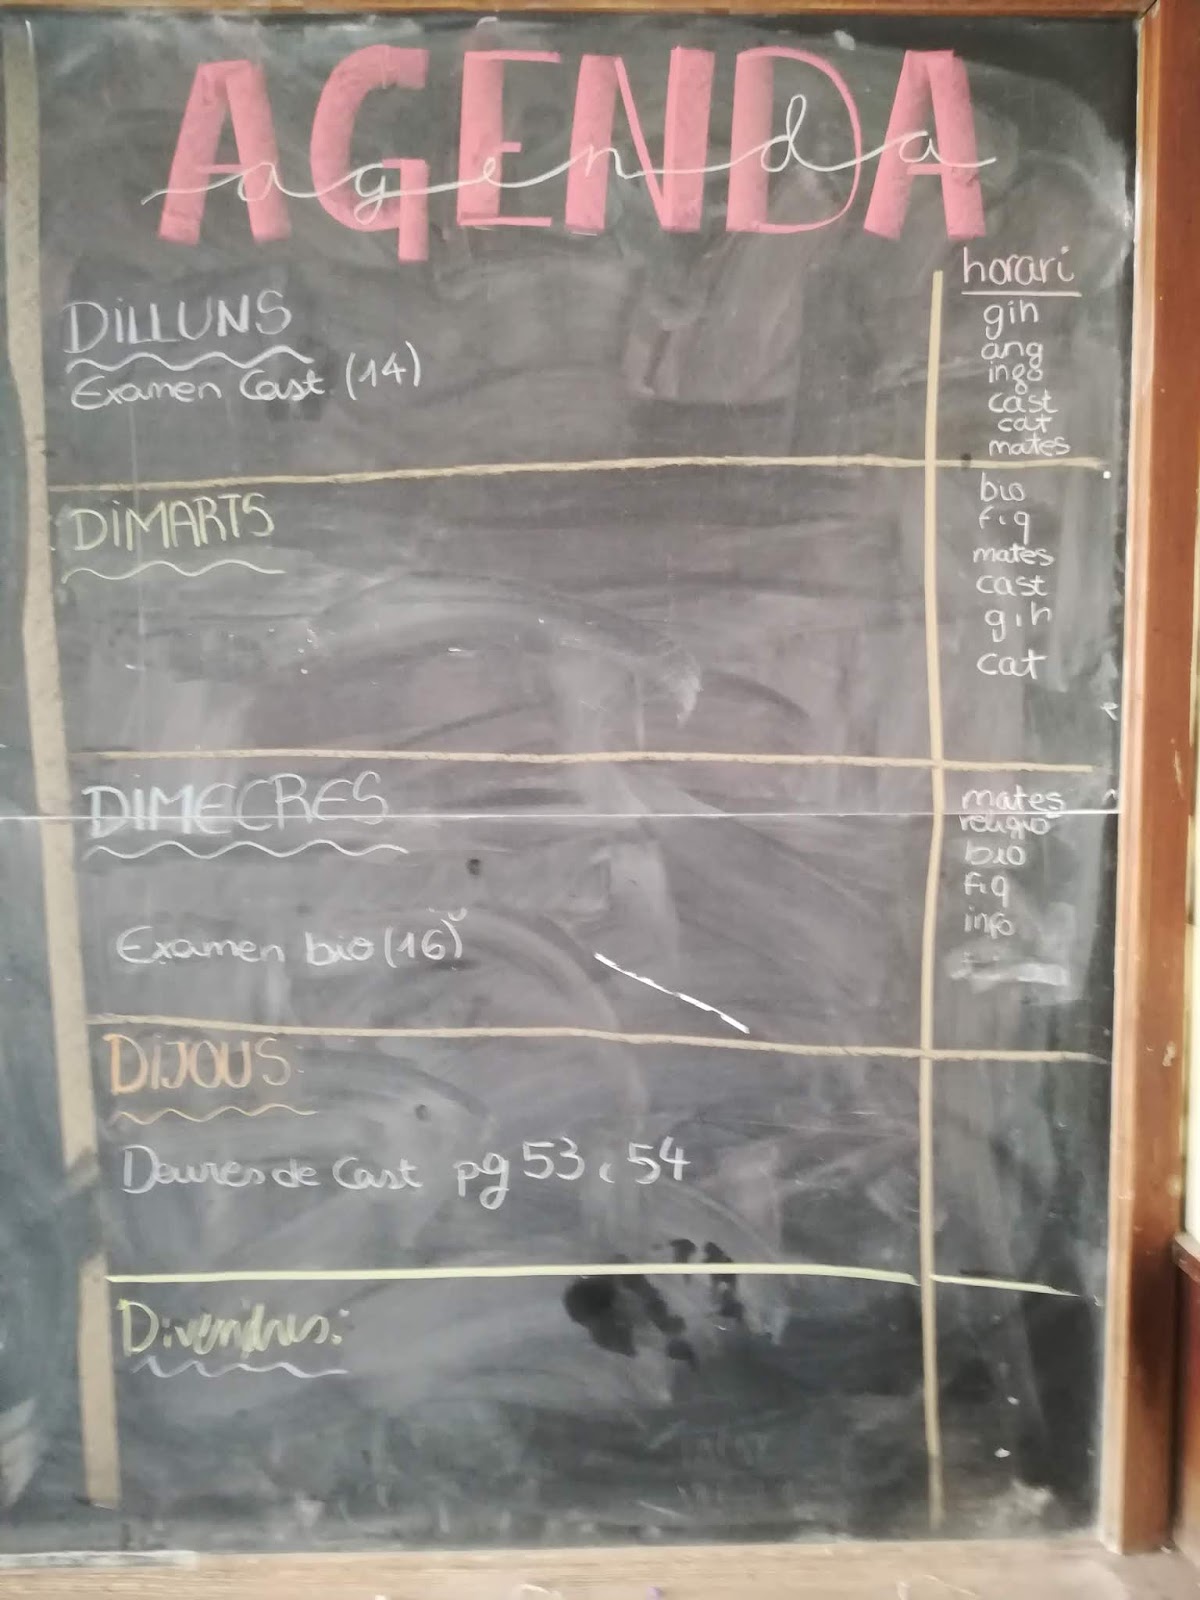 AGENDA
agenda
horari
DILLUNS
Examen Cast (14)
gih
ang
ingo
cast
cat
mates
DIMARTS
bio
fiq
mates
cast
gih
cat
DIMECRES
Examen bio (16)
mates
religió
bio
fiq
info
DIJOUS
Deures de Cast pg 53 i 54
Divendres: